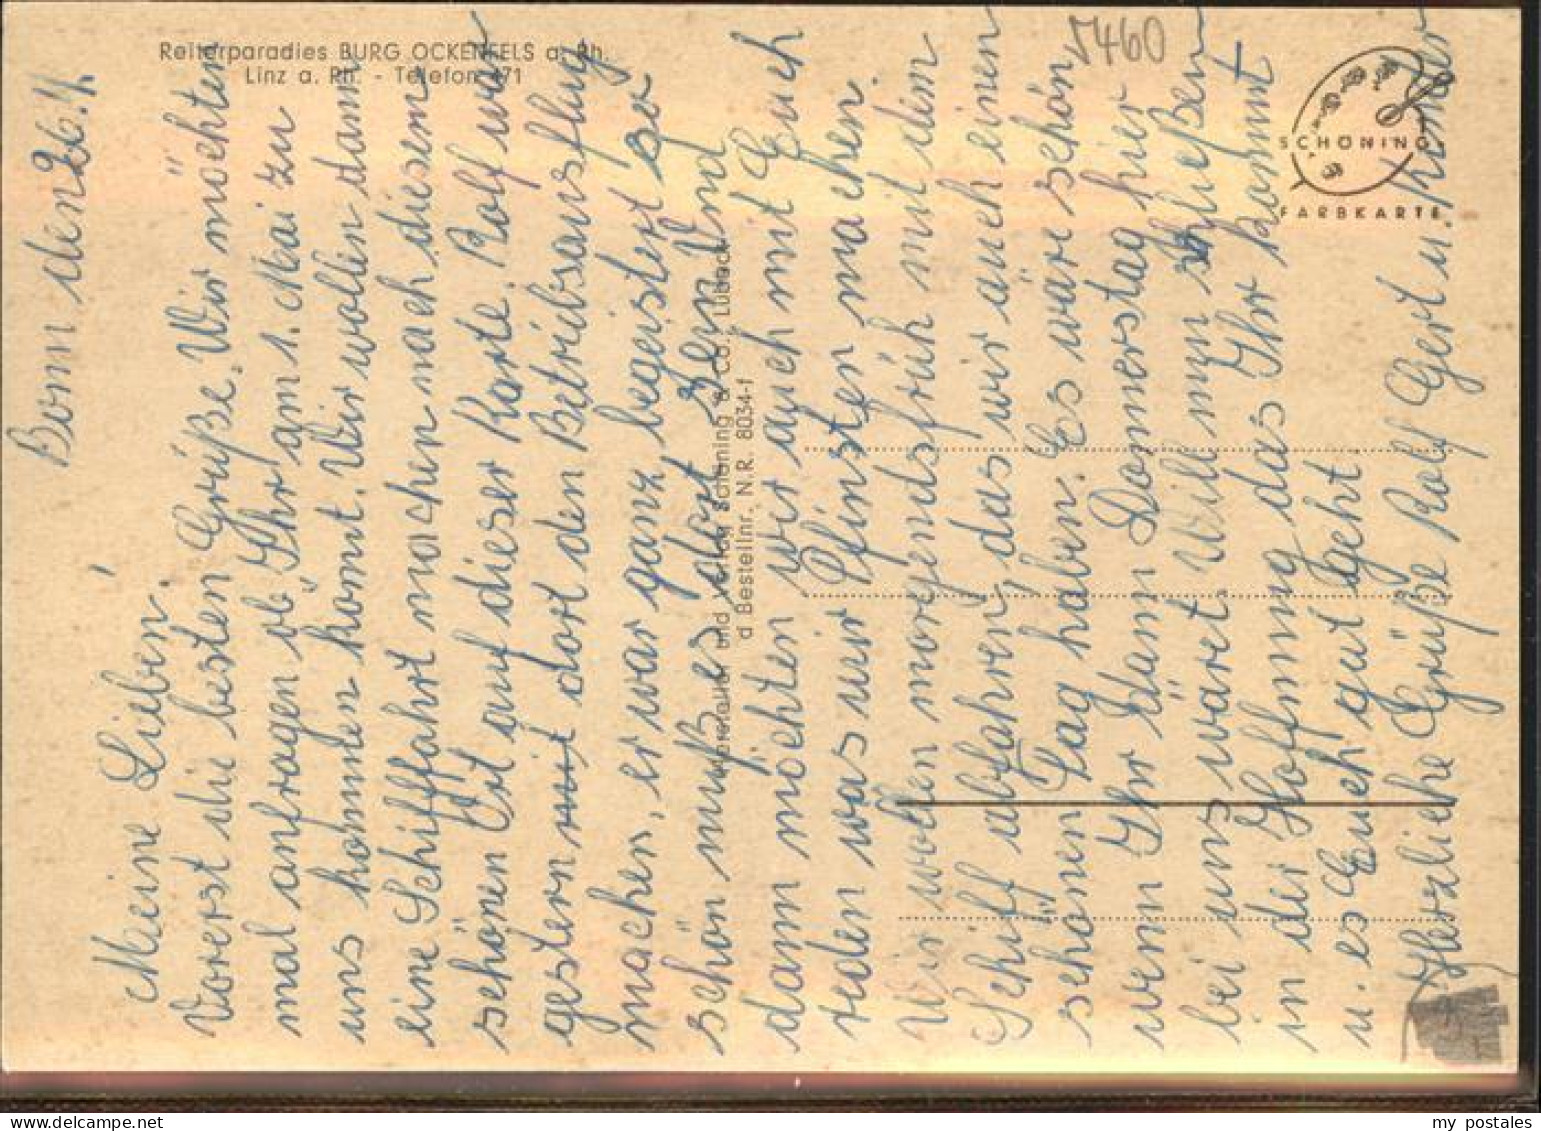 Reiterparadies BURG OCKENFELS a. Rh.
Linz a. Rh. - Telefon 471
7460
SCHÖNING
FARBKARTE
und Verlag Schöning & Co., Lübeck
d Bestellnr. N.R. 8034-1
Bonn den 26.4.
Meine Lieben!
Vorerst die besten Grüße. Wir möchten
mal anfragen ob Ihr am 1. Mai zu
uns kommen komt. Wir wollen dann
eine Schifffahrt machen nach diesem
schönen Ort auf dieser Karte. Rolf war
gestern mit dort den Betriebsausflug
machen, er war ganz begeistert so
schön muß es dort sein. Und
dann möchten wir auch mit Euch
reden was wir Pfinsten machen.
Wir wollen morgendsfrüh mit dem
Schiff abfahren, das wir auch einen
schönen Tag haben. Es wäre schön
wenn Ihr dann Donnerstag hier
bei uns wäret. Will nun schließen
in der Hoffnung das Ihr kommt
u. es Euch gut geht.
Herzliche Grüße Rolf Gert u. Kinder
my postales